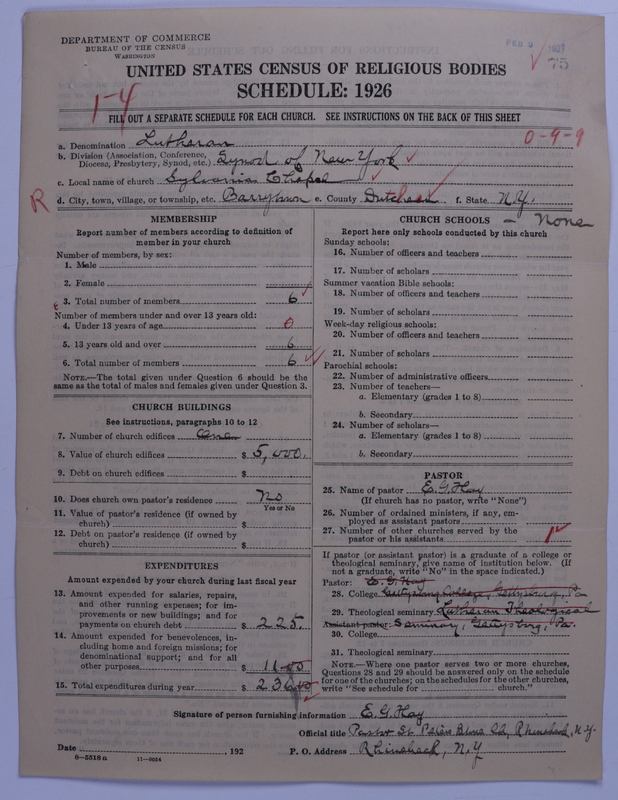 DEPARTMENT OF COMMERCE
BUREAU OF THE CENSUS
WASHINGTON
FEB
75
UNITED STATES CENSUS OF RELIGIOUS BODIES
SCHEDULE: 1926
1-4
FILL OUT A SEPARATE SCHEDULE FOR EACH CHURCH. SEE INSTRUCTIONS ON THE BACK OF THIS SHEET
0-9-9
a. Denomination Lutheran
b. Division (Association, Conference, Diocese, Presbytery, Synod, etc.) Synod of New York
c. Local name of church Sylvania Chapel
R
d. City, town, village, or township, etc. Barrytown e. County Dutchess f. State N.Y.
MEMBERSHIP
Report number of members according to definition of
member in your church
Number of members, by sex:
1. Male
2. Female
3. Total number of members 6
Number of members under and over 13 years old:
4. Under 13 years of age 0
5. 13 years old and over 6
6. Total number of members 6
NOTE.—The total given under Question 6 should be the
same as the total of males and females given under Question 3.
CHURCH BUILDINGS
See instructions, paragraphs 10 to 12
7. Number of church edifices
8. Value of church edifices $ 5,000.
9. Debt on church edifices $
10. Does church own pastor's residence No
Yes or No
11. Value of pastor's residence (if owned by
church) $
12. Debt on pastor's residence (if owned by
church) $
EXPENDITURES
Amount expended by your church during last fiscal year
13. Amount expended for salaries, repairs,
and other running expenses; for im-
provements or new buildings; and for
payments on church debt $ 225.
14. Amount expended for benevolences, in-
cluding home and foreign missions; for
denominational support; and for all
other purposes $ 11.00
15. Total expenditures during year $ 236.00
CHURCH SCHOOLS – None
Report here only schools conducted by this church
Sunday schools:
16. Number of officers and teachers
17. Number of scholars
Summer vacation Bible schools:
18. Number of officers and teachers
19. Number of scholars
Week-day religious schools:
20. Number of officers and teachers
21. Number of scholars
Parochial schools:
22. Number of administrative officers
23. Number of teachers—
a. Elementary (grades 1 to 8)
b. Secondary
24. Number of scholars—
a. Elementary (grades 1 to 8)
b. Secondary
PASTOR
25. Name of pastor E. G. Hay
(If church has no pastor, write "None")
26. Number of ordained ministers, if any, em-
ployed as assistant pastors
27. Number of other churches served by the
pastor or his assistants 1
If pastor (or assistant pastor) is a graduate of a college or
theological seminary, give name of institution below. (If
not a graduate, write "No" in the space indicated.)
Pastor: E. G. Hay
28. College Gettysburg College, Gettysburg, Pa
29. Theological seminary Lutheran Theological
Assistant pastor: Seminary, Gettysburg, Pa.
30. College
31. Theological seminary
NOTE.—Where one pastor serves two or more churches,
Questions 28 and 29 should be answered only on the schedule
for one of the churches; on the schedules for the other churches,
write "See schedule for church."
Signature of person furnishing information E. G. Hay
Official title Pastor St. Rhinebeck, N.Y.
Date , 192 P. O. Address Rhinebeck, N.Y
8—5518 a 11—9034